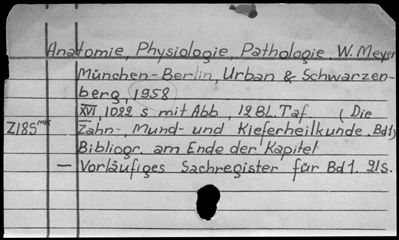 Anatomie, Physiologie, Pathologie. W. Meyer
München-Berlin, Urban & Schwarzen-
berg, 1958
XVI, 1022 s mit Abb, 12 BL. Taf (Die
Z185mk Zahn-, Mund- und Kieferheilkunde. Bd1)
Bibliogr. am Ende der Kapitel
— Vorläufiges Sachregister für Bd 1. 21s.